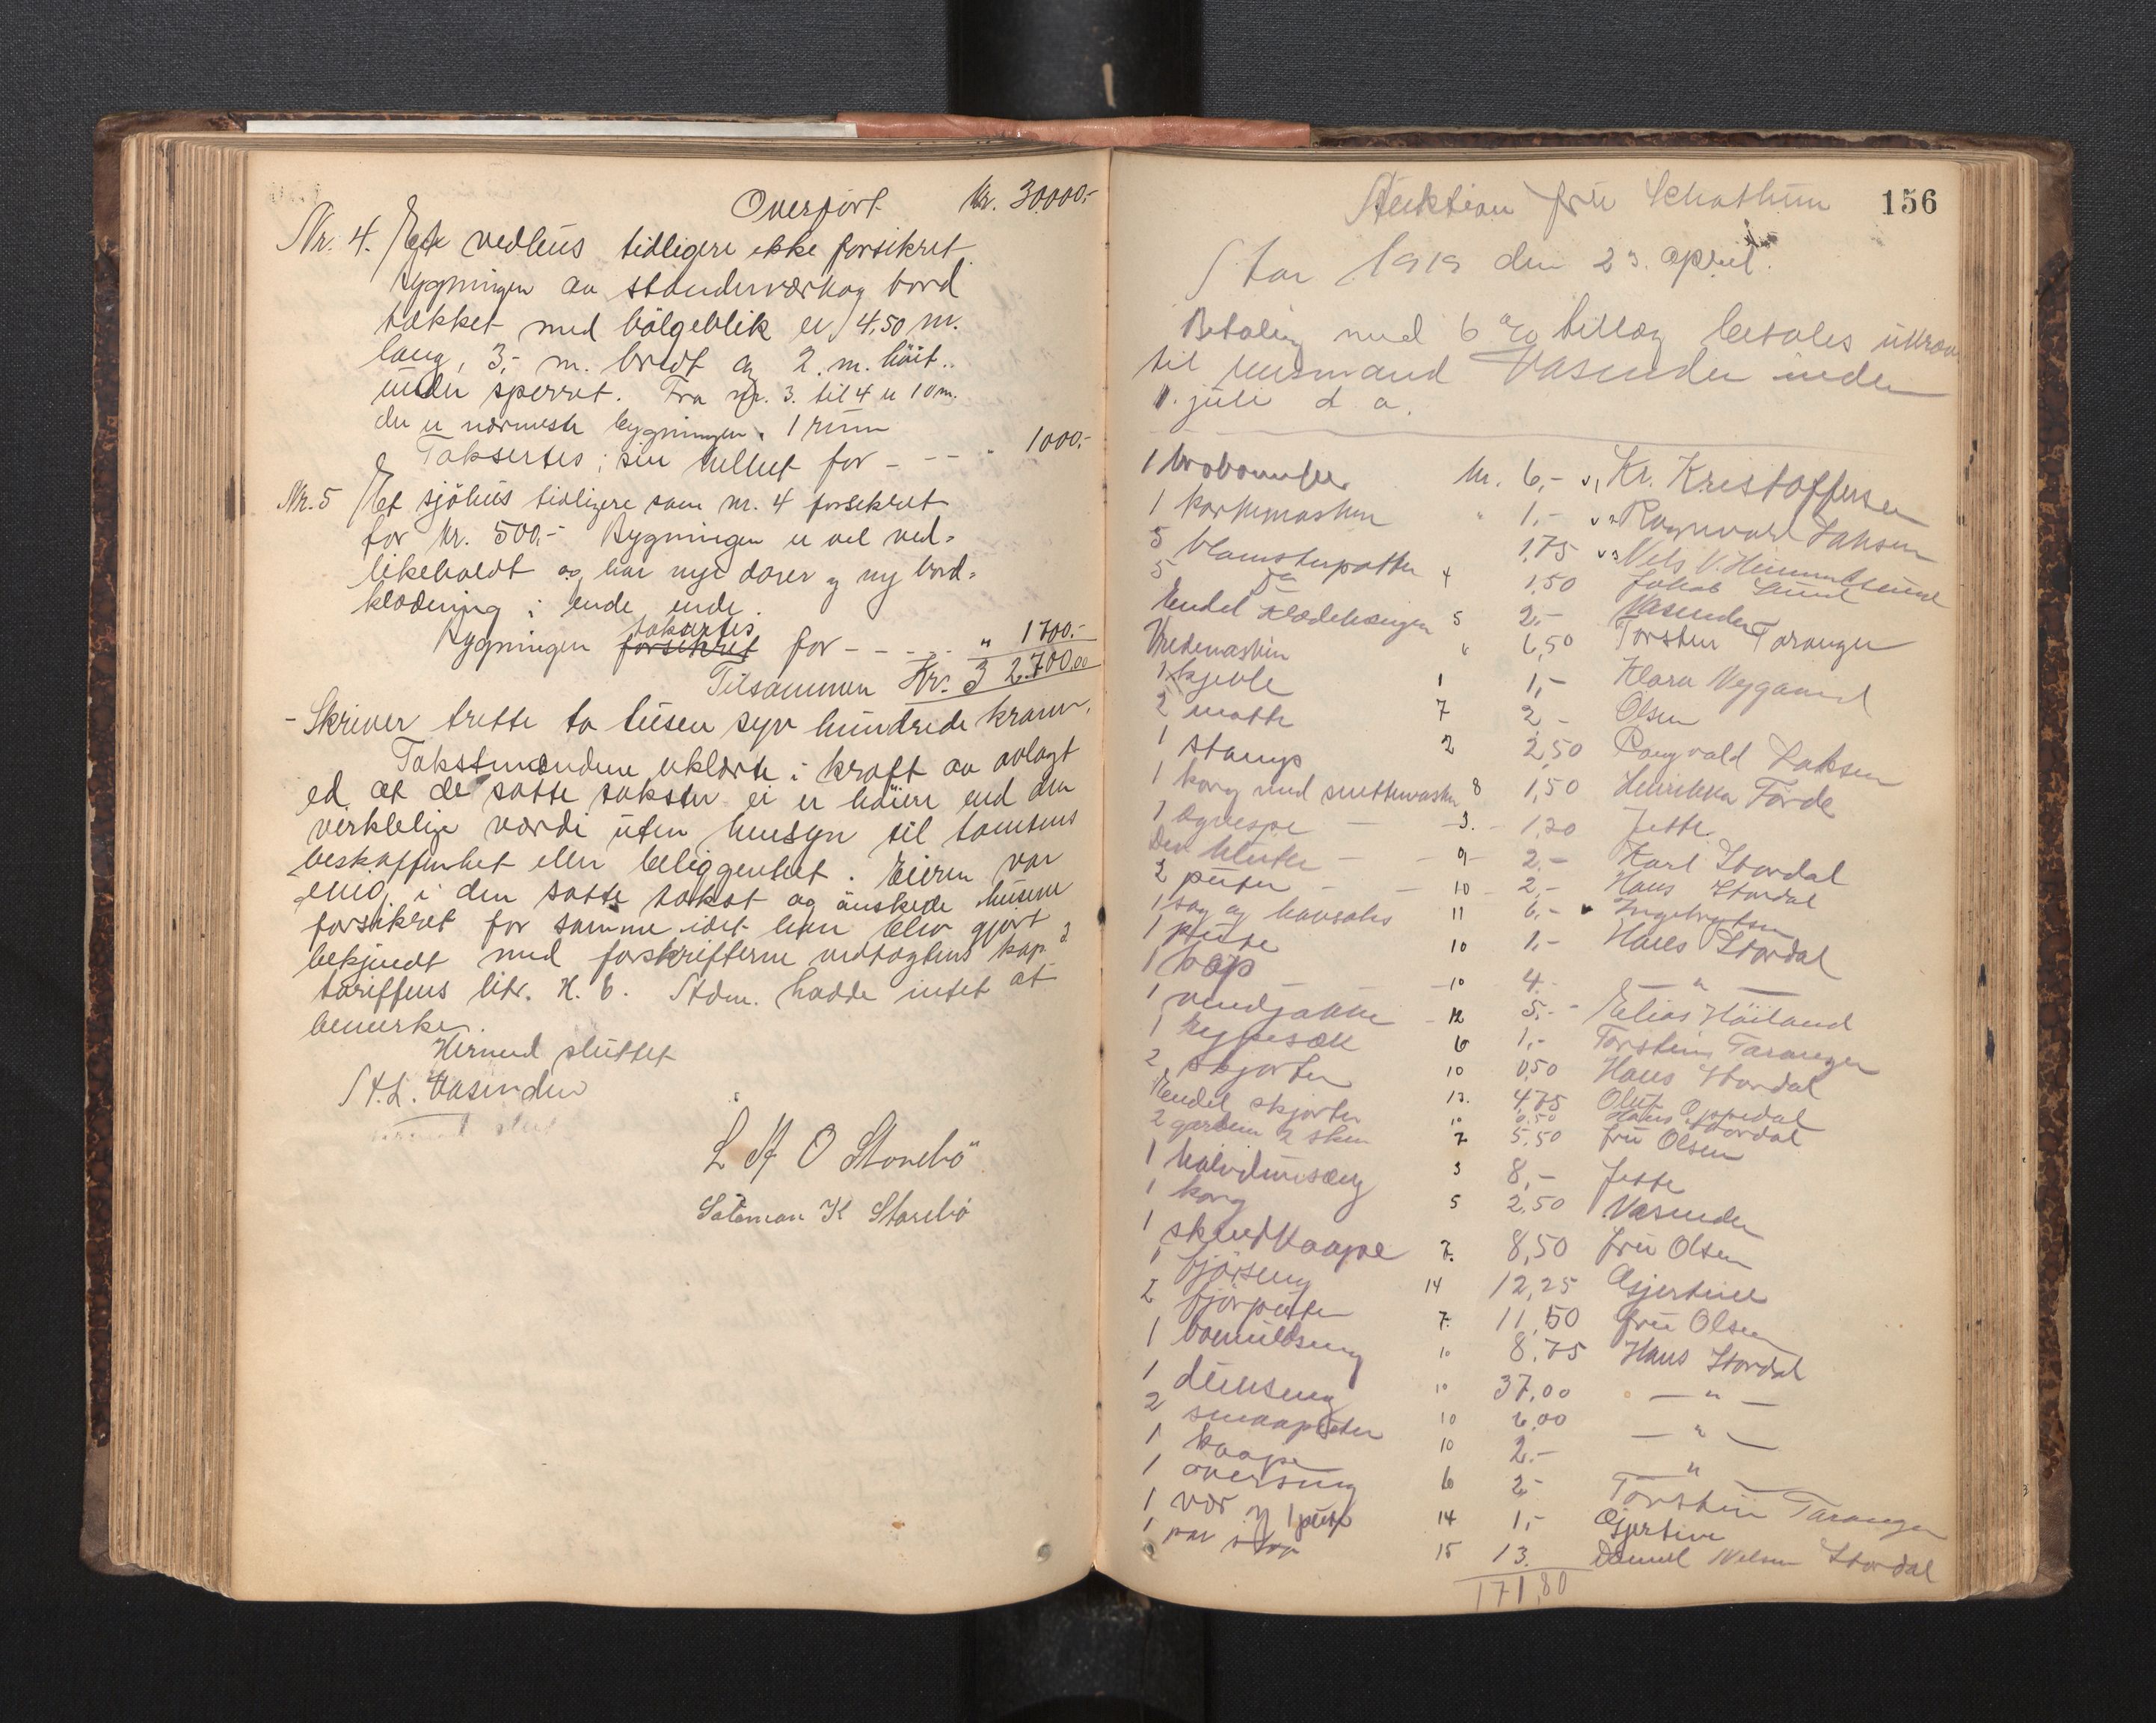 Overført Kr. 30000.-
Nr. 4. Et vedhus tidligere ikke forsikret.
Bygningen av stenderværk og bord
tækket med bölgeblik er 4,50 m.
lang, 3,- m. bredt og 2. m. höit
under sperret. Fra nr. 3. til 4 er 10 m.
der er nærmeste bygningen. 1 rum
Taksertes i sin helhet for - - - " 1000.-
Nr. 5 Et sjöhus tidligere som nr. 4 forsikret
for kr. 500,- Bygningen er vel ved-
likeholdt og har nye dører og ny bord-
klædning i ende ende.
taksertes
Bygningen forsikret for - - - - " 1700.-
Tilsammen Kr. 32.700,00
- Skriver tretti to tusen syv hundrede kroner.
Takstmændene erklærte i kraft av avlagt
ed, at de satte takster ei er höiere end den
verkelige værdi uten hensyn til tomtens
beskaffenhet eller beliggenhet. Eieren var
enig i den satte takst og önskede husene
forsikret for samme idet han blev gjort
bekjendt med forskrifterne vedtægtens kap 2
tariffens litr. H. 6. Stdm. hadde intet at
bemerke.
Hermed sluttet
St. L. Vasenden
L A O Storebö
Salamon K Storebö
156
Auktion fru Schathun
Stor 1919 den 23. april.
Betaling med 6 % tillæg betales
til lensmand Vasenden inden
1. juli d a.
1 Kr. 6,- v1 Kr. Kristoffersen
1 " 1,- v2 Ragnvald Jaksen
5 blomsterpotter 1,75 v3 Nels V.
5 Do 4 1,50 Jakob
Endel klædehenger 5 2,- Vasenden
Vridemaskin 6 6,50 Torsten Taranger
1 kjevle 1 1,- Klara
2 matte 7 2,- Olsen
1 stamp 2 2,50 Rangvald Jaksen
1 korg med 8 1,50 Henrikka Förde
1 3. 1,20 Jette
Div 9 2,- Karl Stordal
2 puter 10 2,- Hans Stordal
1 sag og 11 6,- Ingebrigtsen
1 pute 10 1,- Hans Stordal
1 10 4.- - " -
1 vendjakke 12 5.- Elias Höiland
1 6 1,- Torstein Taranger
2 skjorter 10 0,50 Hans Stordal
Endel skjorter 13. 4,75 Oluf Oppedal
10 0,50 Hans Stordal
2 gardin 2 7 5,50 fru Olsen
1 3 8,- Jette
1 korg 5 2,50 Vasenden
1 skindkaape 7. 8,50 fru Olsen
1 fjörseng 14 12,25 Gjertine
2 fjörputer 7. 11,50 fru Olsen
1 10 8.75 Hans Stordal
1 dunseng 10 37,00 - " -
2 smaaputer 10 6,00 - " -
1 kaape 10 2.- - " -
1 overseng 6 2,- Torstein Taranger
1 var og 1 pute 14 1,- Gjertine
1 par 15 13. Daniel Nelsen Stordal
171,80